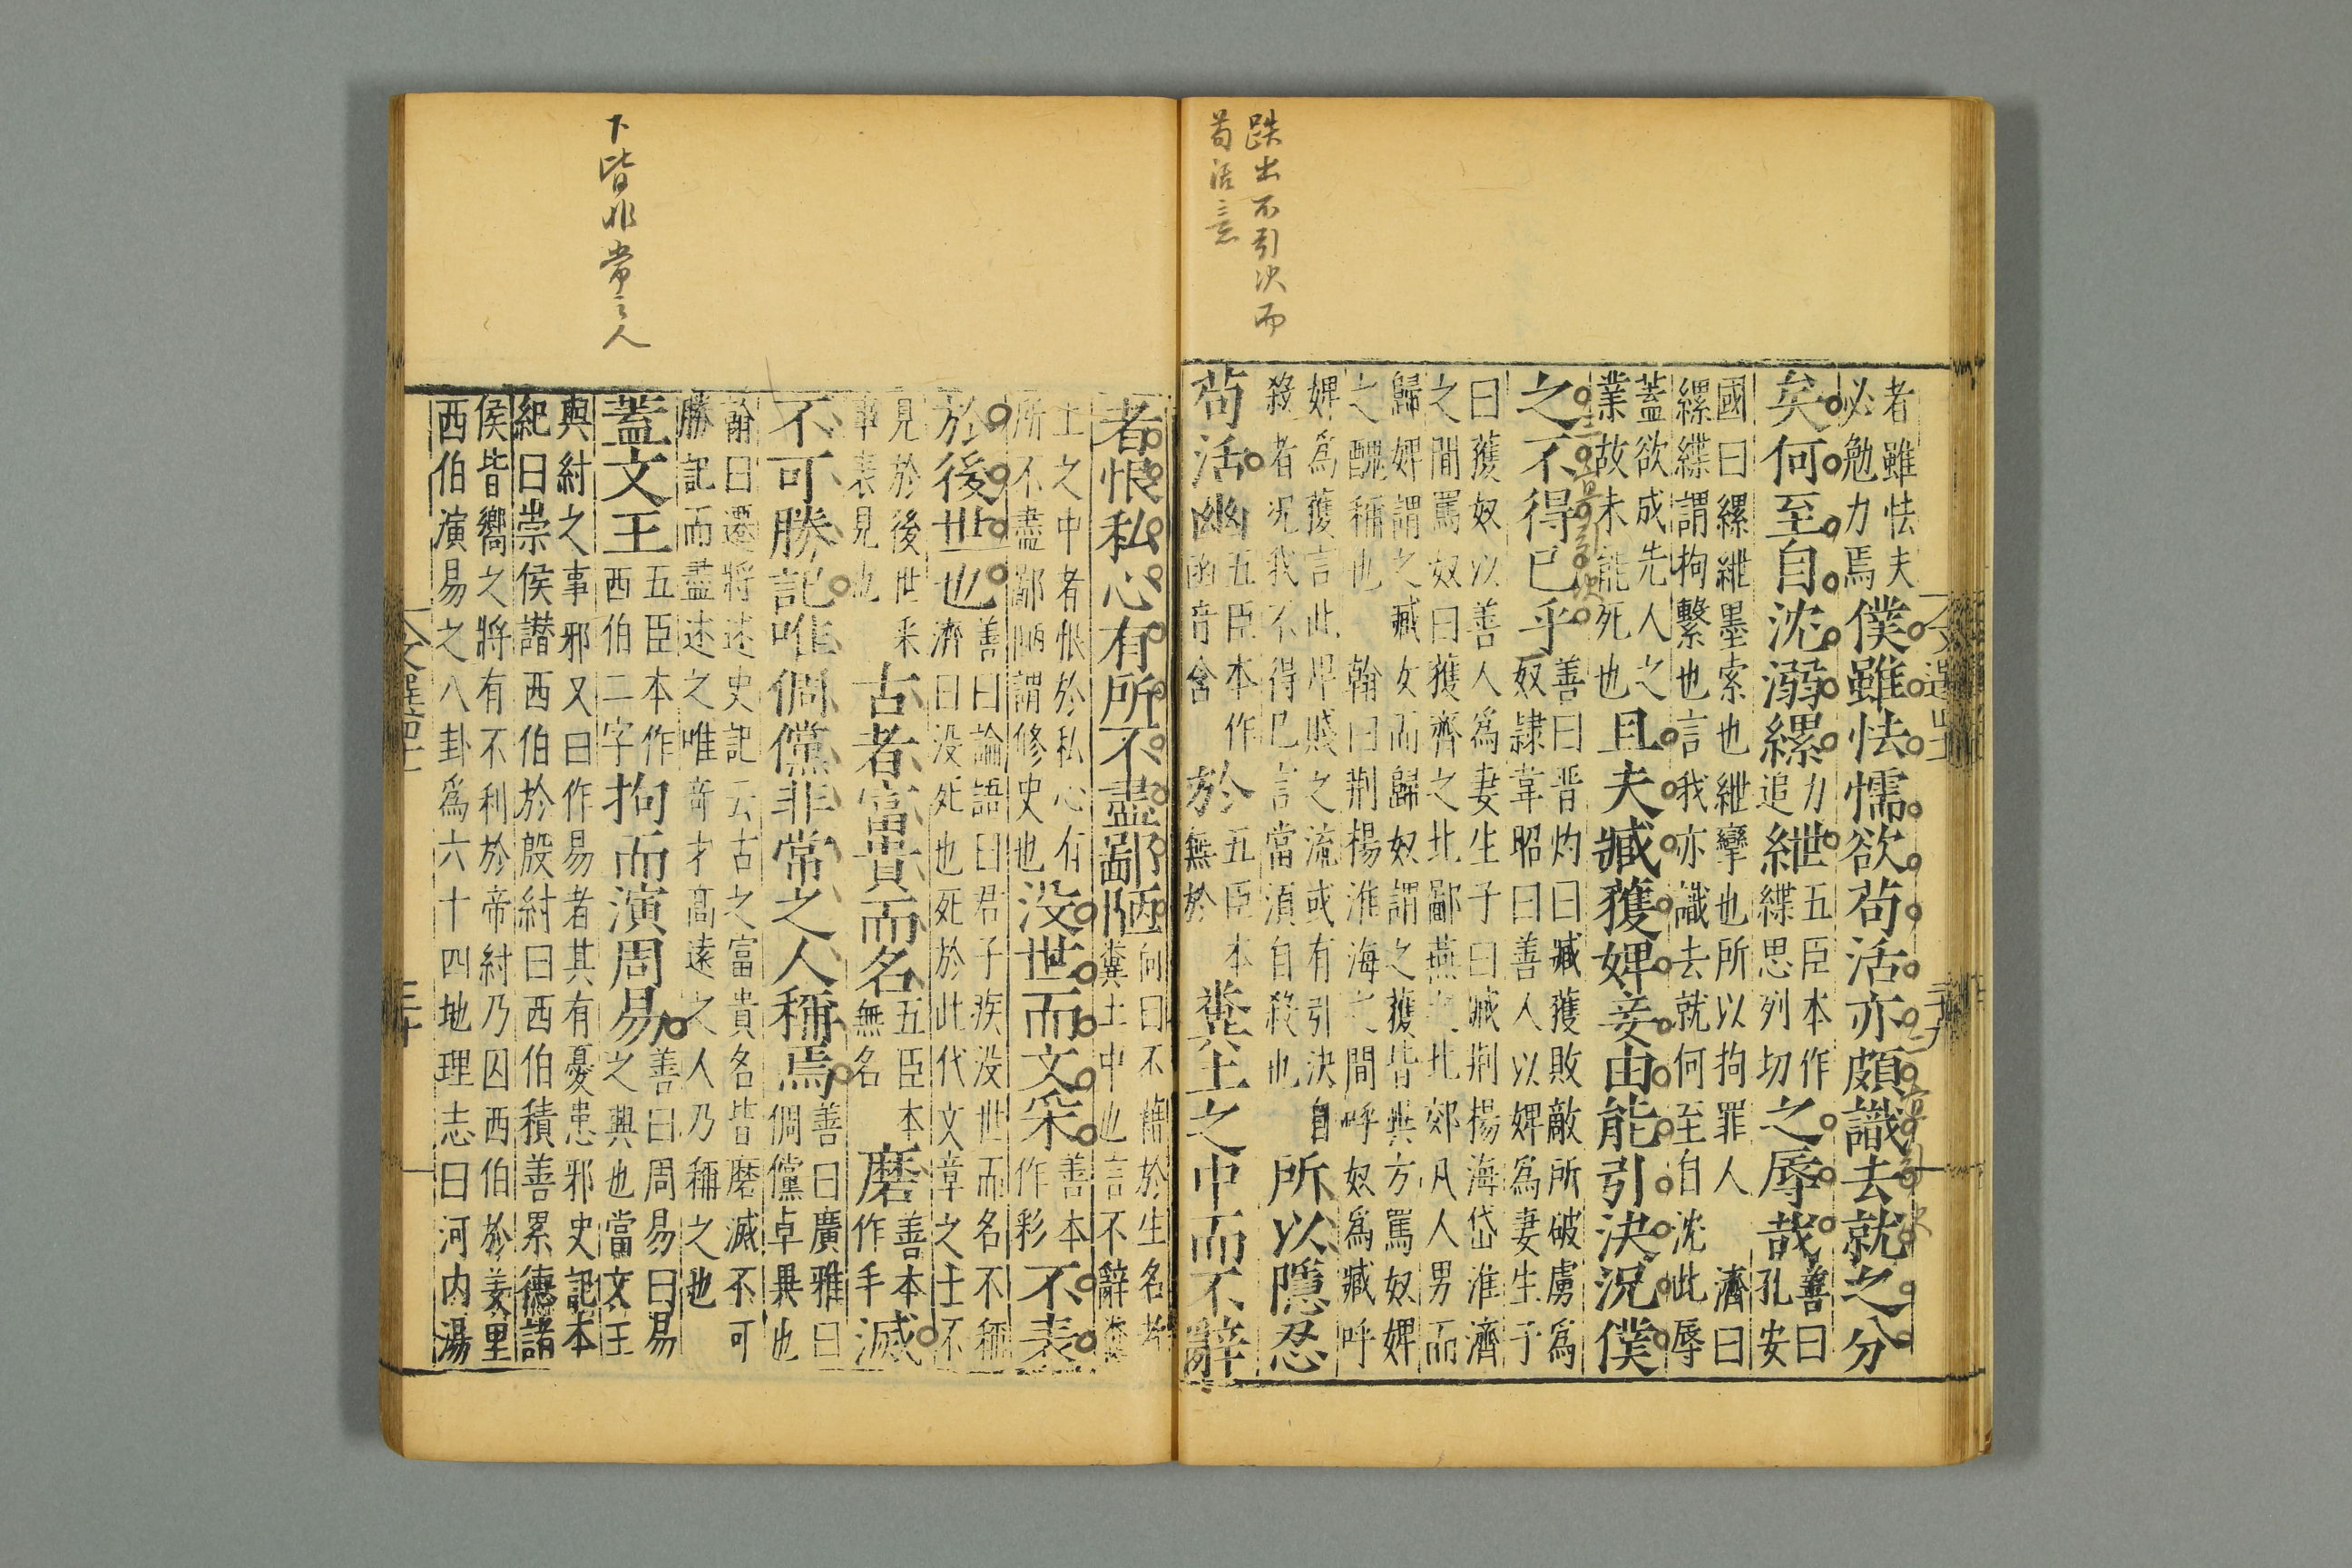 跌出不引决而
苟活意
者雖怯夫
必勉力焉
僕雖怯懦欲苟活亦頗識去就之分
矣何至自沈溺縲
力
追
絏
五臣本作
緤思列切
之辱哉
善曰
孔安
國曰縲絏墨索也絏攣也所以拘罪人 濟曰
縲緤謂拘繫也言我亦識去就何至自沈此辱
蓋欲成先人之
業故未能死也
且夫臧獲婢妾由能引決況僕
之不得已乎
善曰晋灼曰臧獲敗敵所破虜為
奴隷韋昭曰善人以婢為妻生子
曰獲奴以善人爲妻生子曰臧荆楊海岱淮濟
之間罵奴曰獲齊之北鄙燕之北郊凡人男而
歸婢謂之臧女而歸奴謂之獲皆異方罵奴婢
之醜稱也 翰曰荆楊淮海之間呼奴爲臧呼
婢爲獲言此卑賤之流或有引決自
殺者况我不得已言當湏自殺也
所以隱忍
苟活幽
五臣本作
函音含
於
五臣本
無於
糞土之中而不辭
文選四十一
二十九
下皆非常之人
者恨私心有所不盡鄙陋
向曰不辭於生名者
糞土中也言不辭糞
土之中者恨於私心有
所不盡鄙陋謂修史也
没世而文采
善本
作彩
不表
於後世也
善曰論語曰君子疾没世而名不稱
濟曰没死也死於此代文章之士不
見於後世采
事表見也
古者富貴而名
五臣本
無名
磨
善本
作手
滅
不可勝記唯倜儻非常之人稱焉
善曰廣雅曰
倜儻卓異也
翰曰遷將述史記云古之富貴名皆磨滅不可
勝記而盡述之唯竒才髙逺之人乃稱之也
蓋文王
五臣本作
西伯二字
拘而演周易
善曰周易曰易
之興也當文王
與紂之事邪又曰作易者其有憂患邪史記本
紀曰崇侯譖西伯於殷紂曰西伯積善累德諸
侯皆嚮之將有不利於帝紂乃囚西伯於羑里
西伯演易之八卦爲六十四地理志曰河内湯
文選四十一
三十